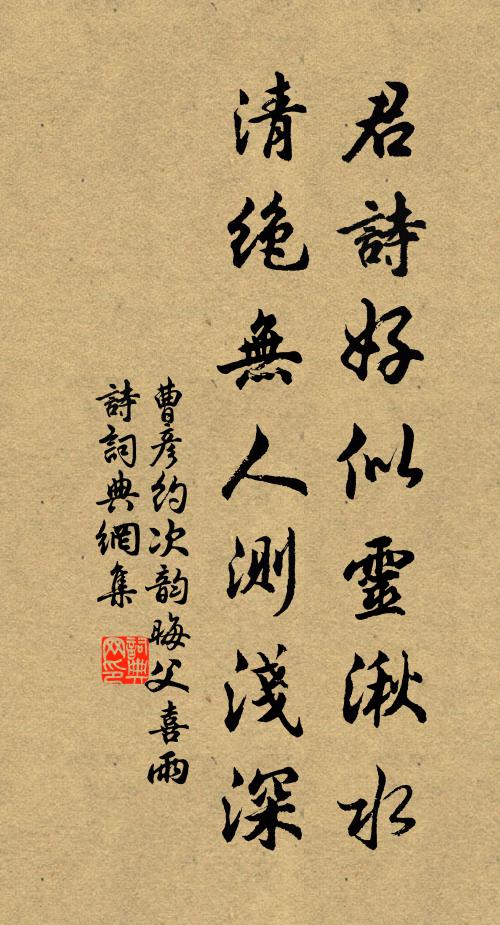 君詩好似靈湫水
清絶無人測淺深
曹彦約次韵晦父喜雨
詩詞典網集
詞典网印